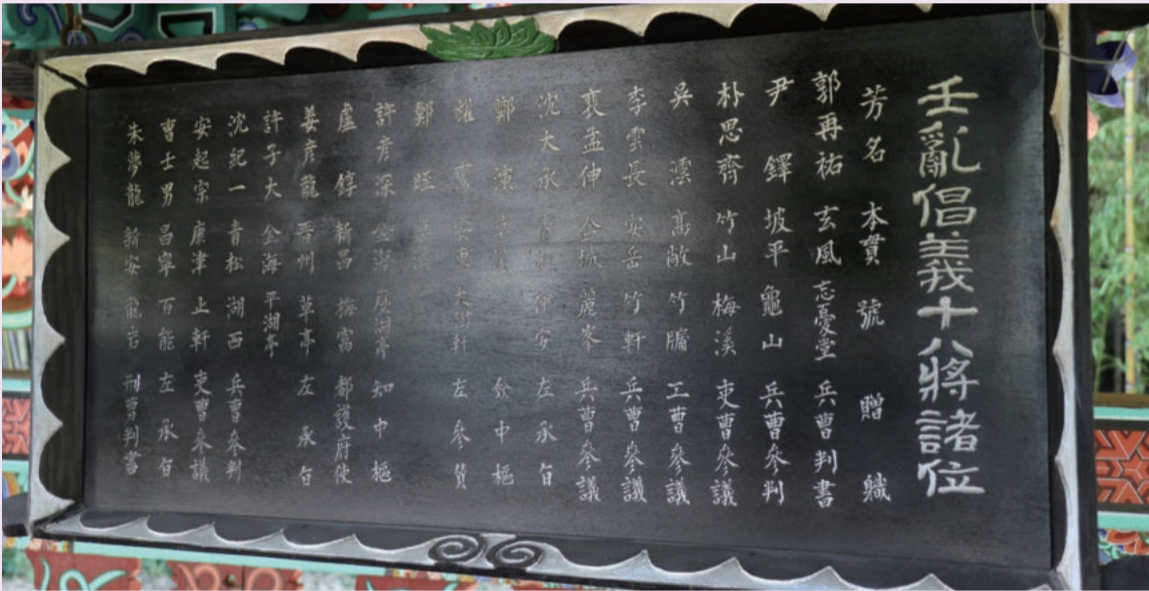 壬亂倡義十八將諸位
芳名 本貫 號 贈職
郭再祐 玄風 忘憂堂 兵曹判書
尹鐸 坡平 龜山 兵曹參判
朴思齊 竹山 梅溪 吏曹參議
吳澐 高敞 竹牖 工曹參議
李雲長 安岳 竹軒 兵曹參議
裵孟伸 金城 麓峯 兵曹參議
沈大承 靑松 安 左承旨
鄭演 僉中樞
權鸞 安東 軒 左參贊
鄭
許彦深 金海 湖亭 知中樞
盧錞 新昌 梅窩 都護府使
姜彦龍 晋州 草亭 左承旨
許子大 金海 平湖亭
沈紀一 青松 湖西 兵曹參判
安起宗 康津 止軒 吏曹參議
曺士男 昌寧 百能 左承旨
朱夢龍 新安 龍岩 刑曹判書